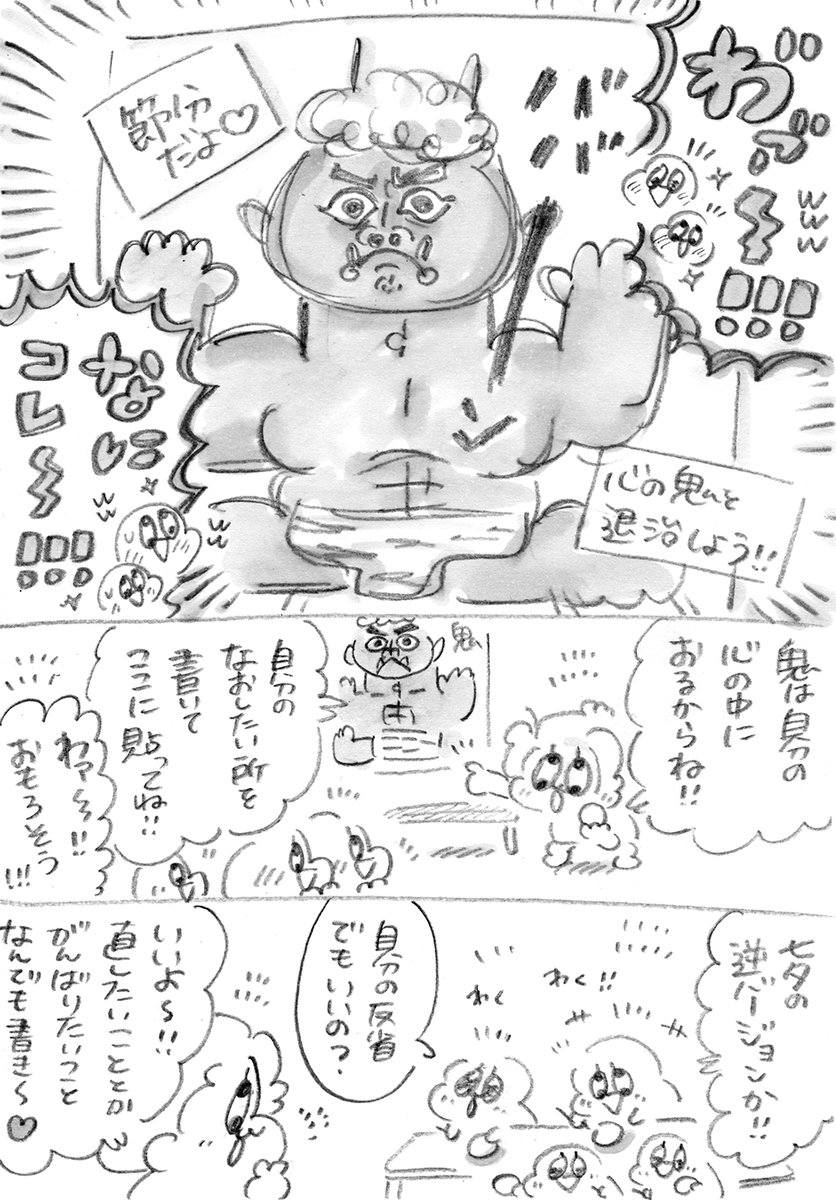 わぁ〜www!!!
バ゛
バ゛
節分
だよ♡
なに
コレ〜ww!!!
心の鬼を
退治しよう!!
鬼は自分の
心の中に
おるからね!!
鬼
自分の
なおしたい所を
書いて
ココに貼ってね!!
わァ〜!!
おもろそう!!!
七夕の
逆バージョンか!!
わく!!
わく
自分の反省
でもいいの?
いいよ〜!!
直したいこととか
がんばりたいこと
なんでも書き〜♥